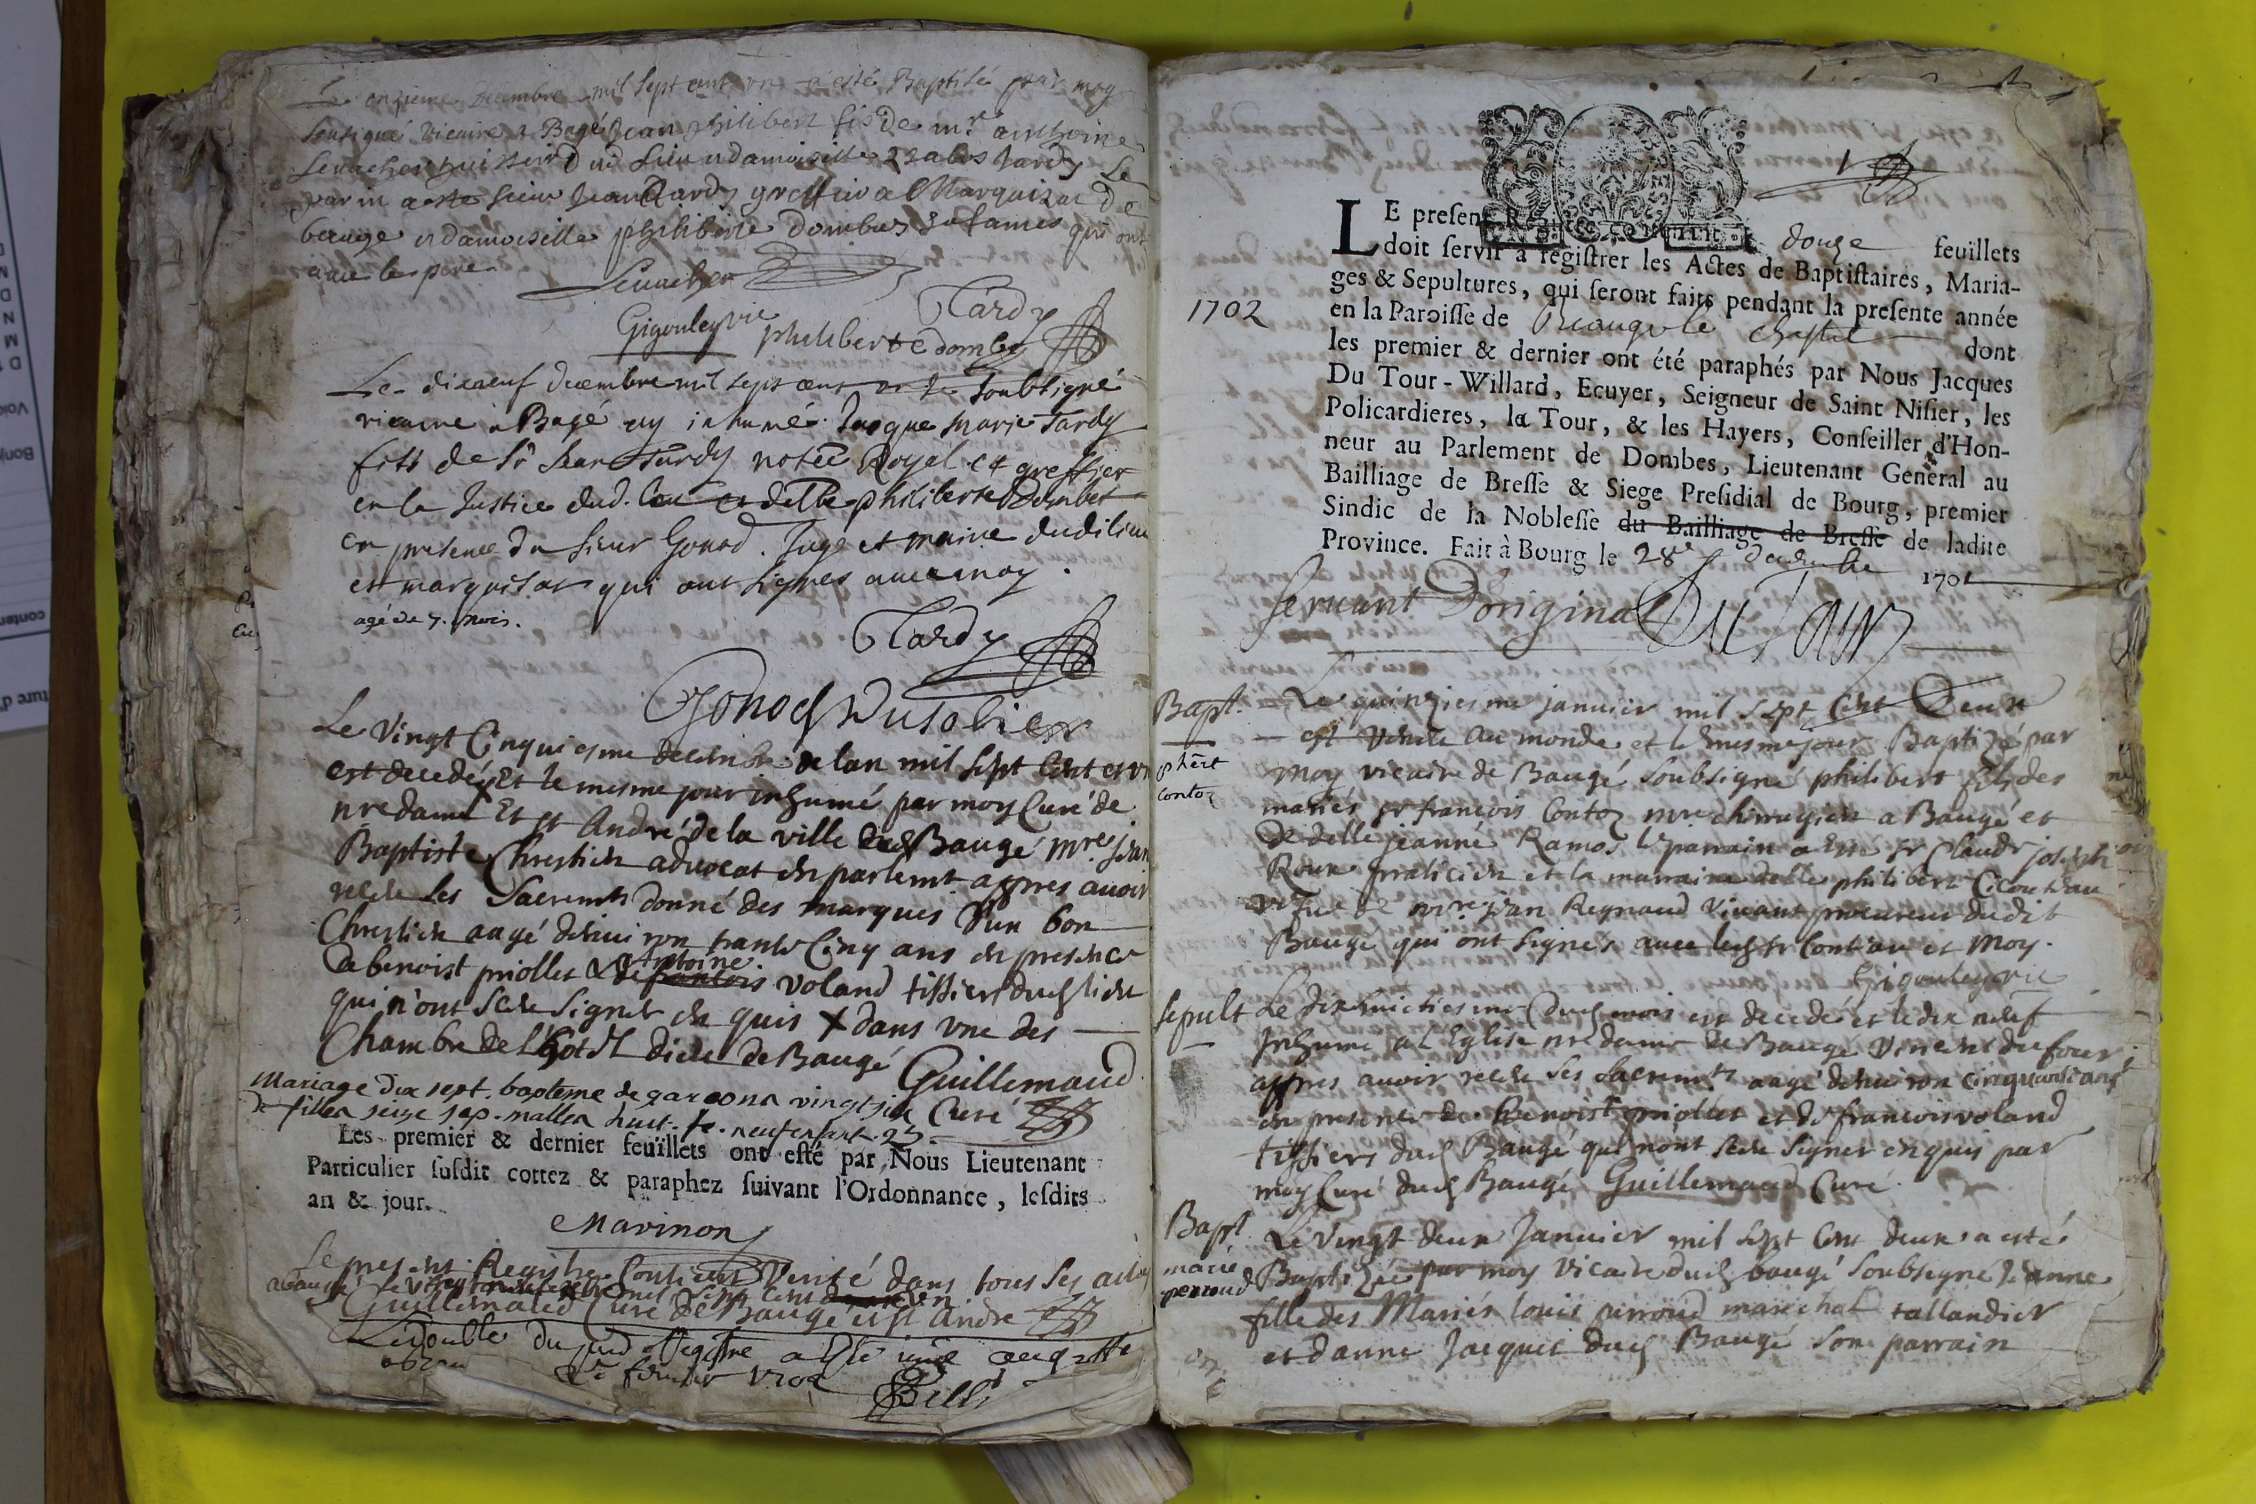 Le onzieme decembre mil sept cent vn a esté Baptisé par moy
soussigné vicaire a Bagé Jean philibert fils de mr anthoine
huissier dud lieu et damoiselle Tardy Le
parin a este sieur Jean Tardy greffier a Marquizat de
beauge et damoiselle philiberte Dombey sa fames qui ont
auec le pere
Tardy
Gigouley vic philiberte dombey
Le dixneuf decembre mil sept cent soubsigné
vicaire a Bagé ay inhumé Jacque marie Tardy
fils de Sr Jean Tardy Royal et greffier
en la Justice dud. lieu et de delle philiberte Dombey
en presence du sieur Gonod Juge et maire dudi lieu
et marquisat qui ont signes auec moy.
agé de 7. mois.
Tardy
Gonod Dutobier
Le Vingt Cinquiesme decembre de lan mil sept Cent et vn
est decedé Et le mesme jour inhumé par moy Curé de
nre dame Et st André de la ville dud Baugé Mre Jean
Baptiste Chrestien aduocat en parlemt appres auoir
receu les Sacremts donné des marques d'un bon
Chrestien aagé denuiron trante Cinq ans en presence
de benoist priollet & de Antoine voland tissiers dud lieu
qui n'ont sceu signer en quis X dans vne des
Chambre de l'hotel dieu de Baugé Guillemaud
Mariage dix sept. bapteme de garcons vingt six Curé
de filles seize sep. malles huit. fe. neuf enfant. 25.
Les premier & dernier feüillets ont esté par Nous Lieutenant
Particulier susdit cottez & paraphez suivant l'Ordonnance, lesdits
an & jour.
Marinon
Le present Registre Contient Verité dans tous ses actes
a baugé
Guillemaud Curé de Baugé et st André
Le double du pnt Registre a esté mis au greffe
fevrier 1702
1702
LE present Registre contenant douze feuillets
doit servir à régistrer les Actes de Baptistaires, Maria-
ges & Sepultures, qui seront faits pendant la presente année
en la Paroisse de Beauge le Chastel dont
les premier & dernier ont été paraphés par Nous Jacques
Du Tour-Willard, Ecuyer, Seigneur de Saint Nisier, les
Policardieres, la Tour, & les Hayers, Conseiller d'Hon-
neur au Parlement de Dombes, Lieutenant General au
Bailliage de Bresse & Siege Presidial de Bourg, premier
Sindic de la Noblesse du Bailliage de Bresse de ladite
Province. Fait à Bourg le 28e decembre 1701
seruant D'original Du Tour
Bapt. Le quinziesme januier mil sept Cent Deux
est venu au monde et le mesme jour Baptizé par
phert
moy vicaire de Baugé soubsigné philibert fils des
contoz
mariés sr françois Contoz mre chirugien a Baugé et
de delle jeanne Ramos le parrain a esté sr Claude joseph
Roux praticien et la marraine delle philibert
vefue de mre jean Reynaud viuant procureur dudit
Baugé qui ont signés auec led sr Contoz et moy.
Gigouley vic
sepult Le dix huictiesme dud mois est decedé et le dix neuf
Inhumé a L'Eglise nre dame de Baugé Vincent du four
appres auoir receu ses sacremts aagé denuiron cinquante ans
en presence de Benoist priollet et de francois voland
tissiers dud Baugé qui nont sceu signer enquis par
moy Curé dud Baugé Guillemaud Curé.
Bapt Le Vingt deux Januier mil sept Cens deux a esté
marie
Baptizée par moy vicaire dud baugé soubsigné Jeanne
perroud
fille des Mariés louis perroud marechal tallandier
et danne Jacquet dud Baugé son parrain